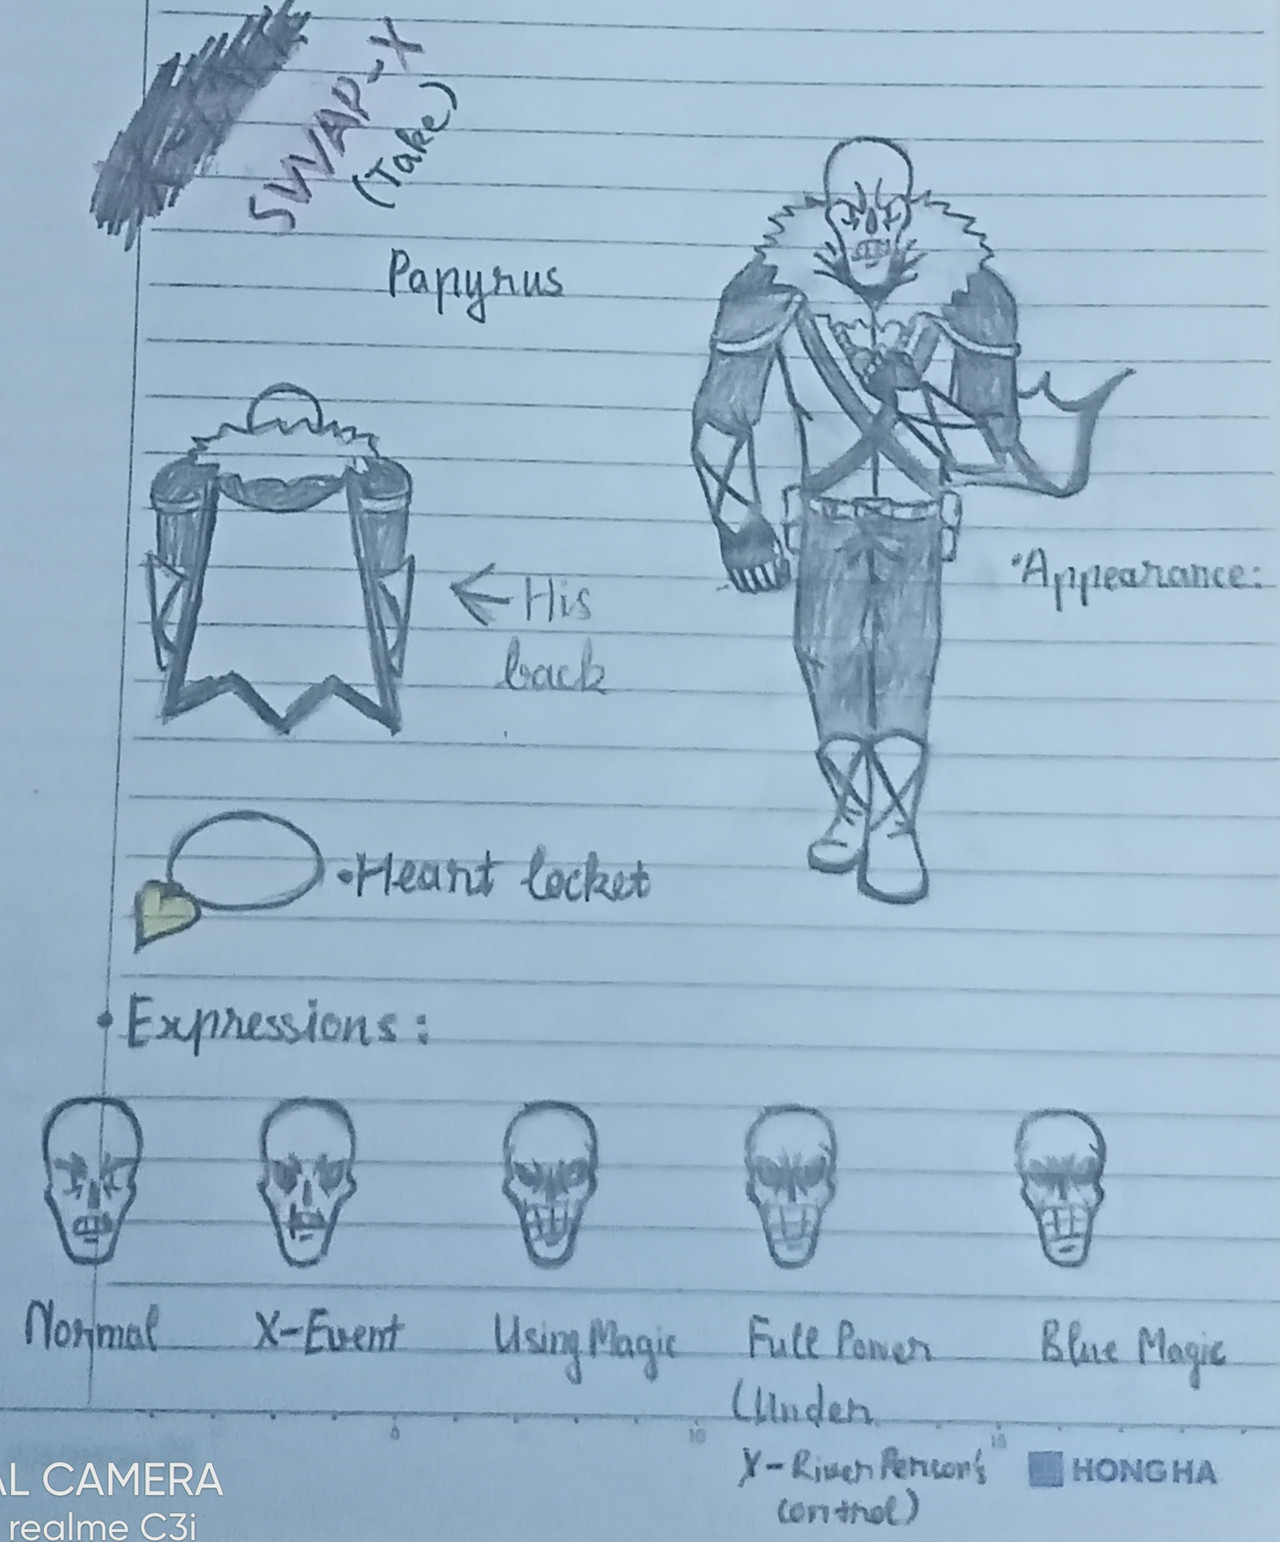 SWAP-X
(Take)
Papyrus
Appearance:
His
back
Heart locket
Expressions:
Normal
X-Event
Using Magic
Full Power
(Under
X-River Person's
control)
Blue Magic
HONG HA
AL CAMERA
realme C3i